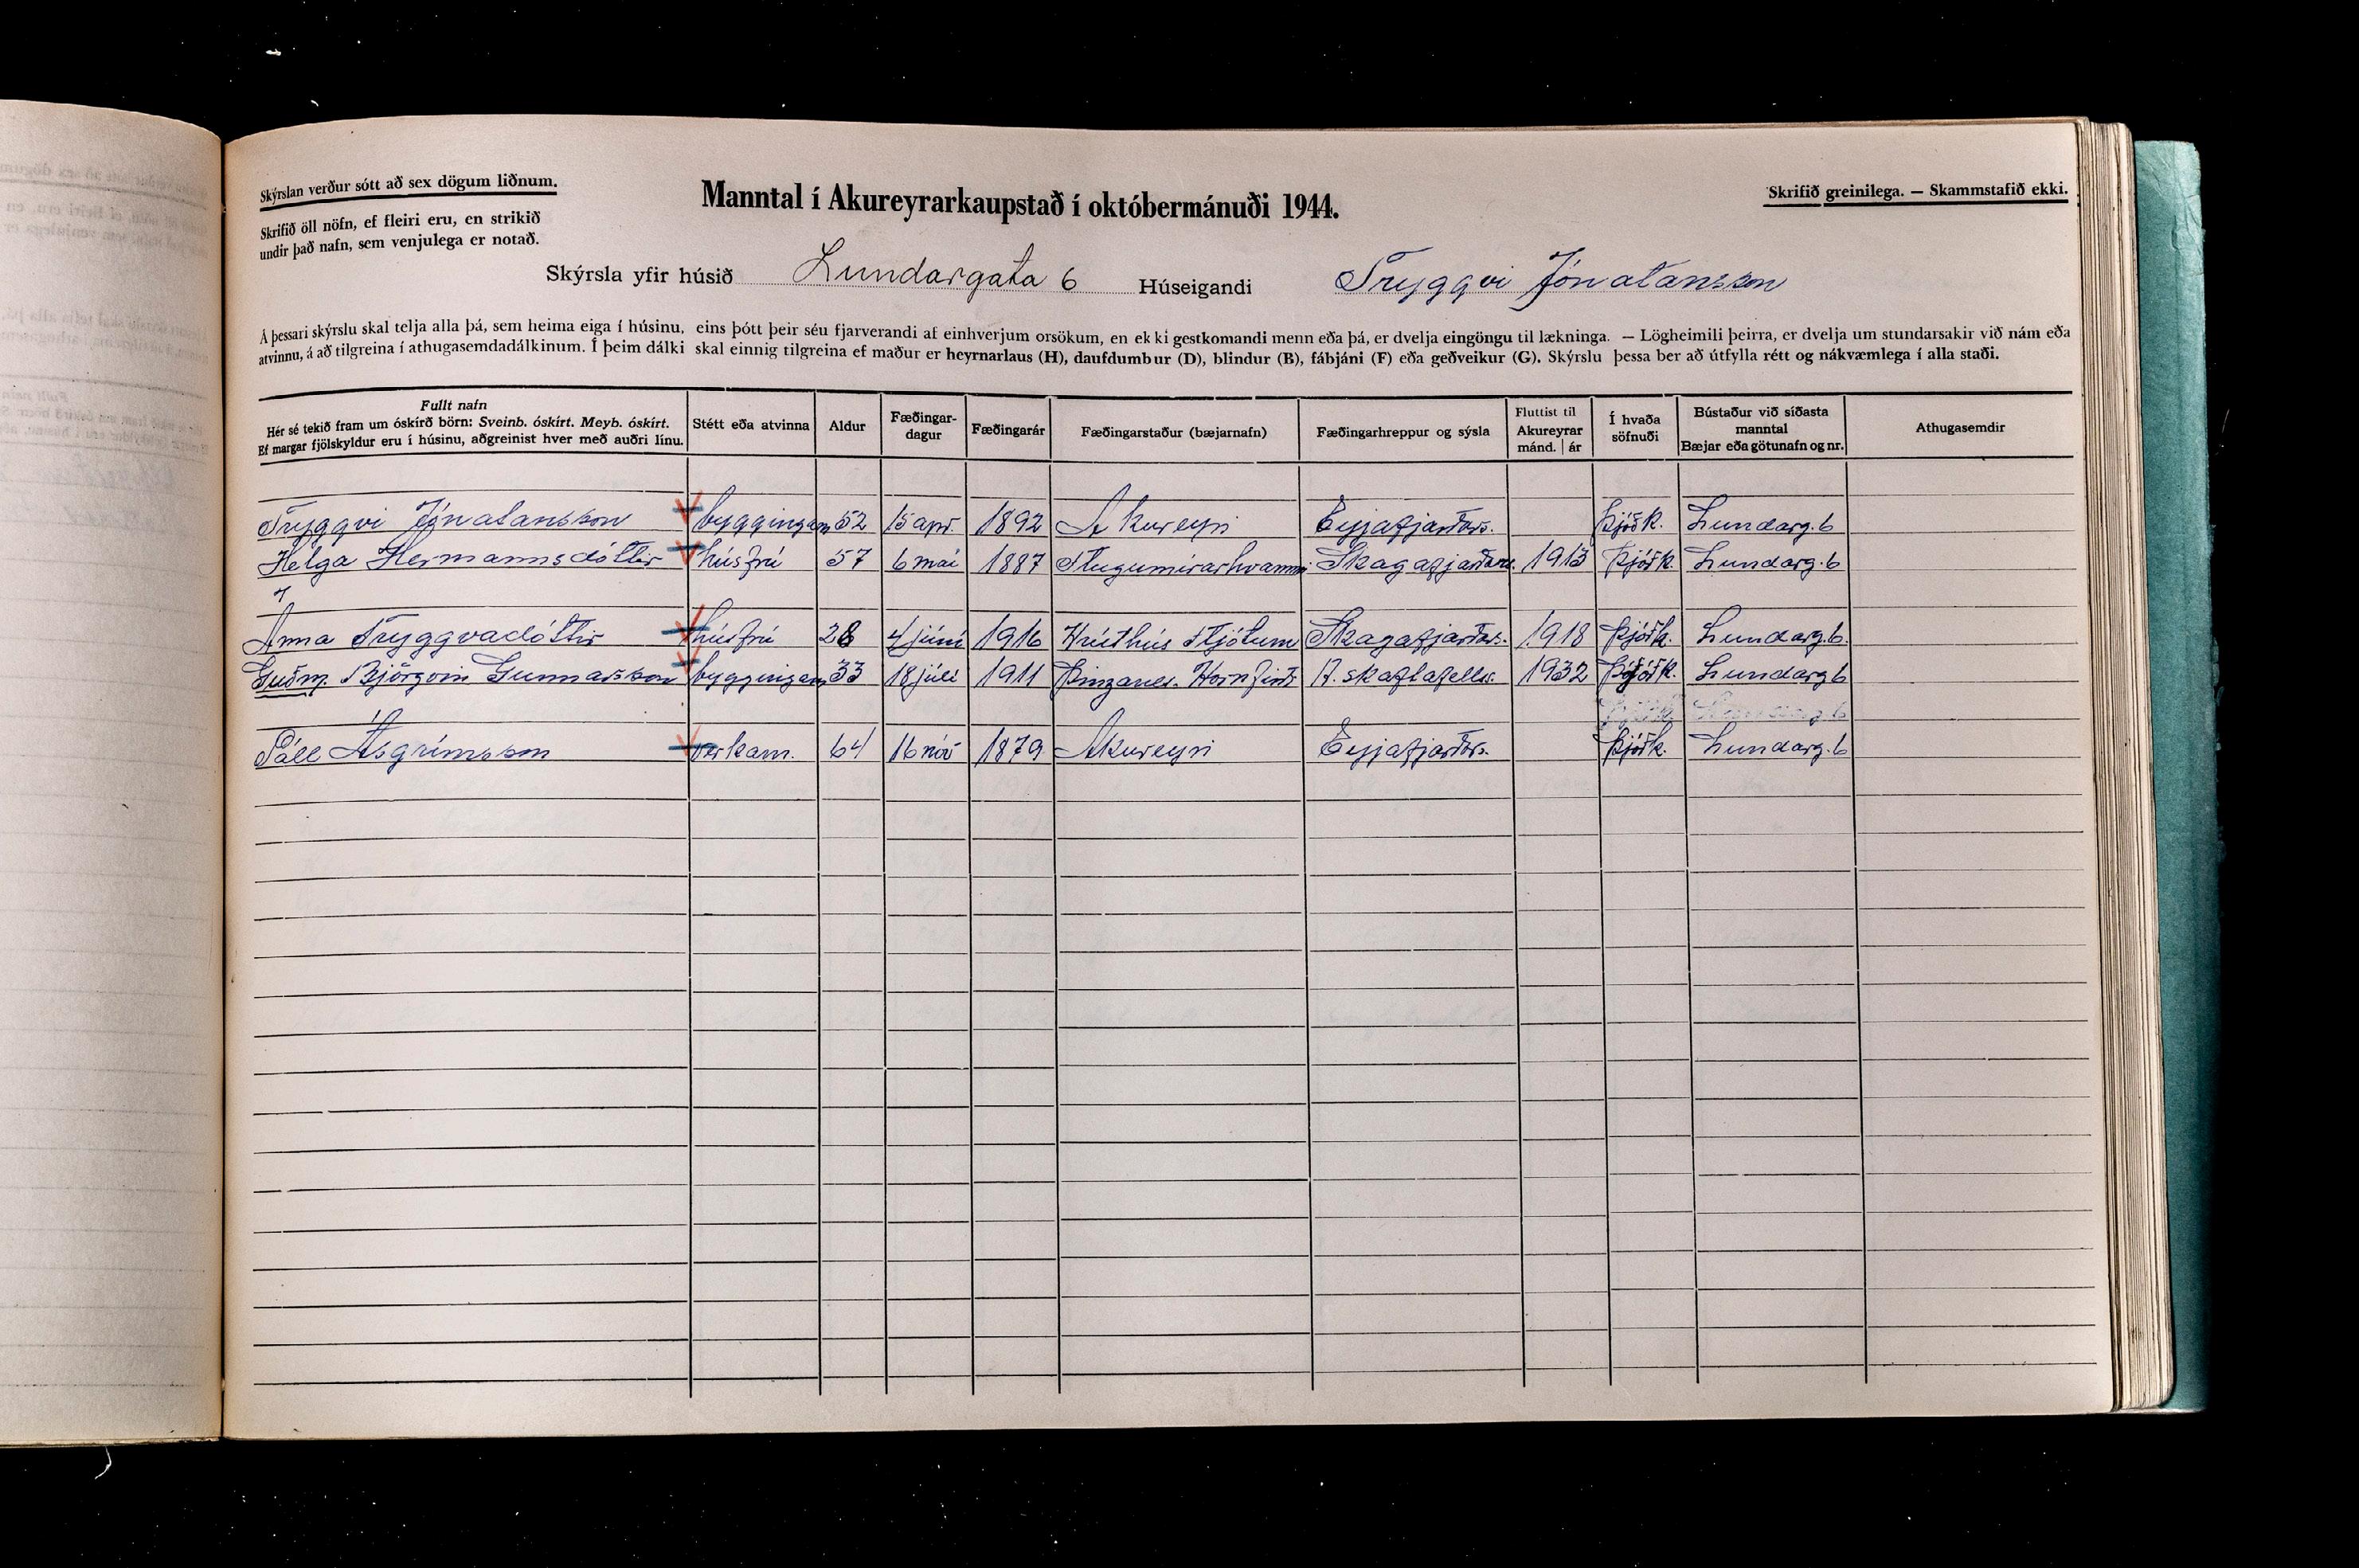 Skýrslan verður sótt að sex dögum liðnum.
Skrifið öll nöfn, ef fleiri eru, en strikið
undir það nafn, sem venjulega er notað.
Manntal í Akureyrarkaupstað í októbermánuði 1944.
Skrifið greinilega. — Skammstafið ekki.
Skýrsla yfir húsið Lundargata 6 Húseigandi Tryggvi Jónatansson
Á þessari skýrslu skal telja alla þá, sem heima eiga í húsinu, eins þótt þeir séu fjarverandi af einhverjum orsökum, en ekki gestkomandi menn eða þá, er dvelja eingöngu til lækninga. — Lögheimili þeirra, er dvelja um stundarsakir við nám eða
atvinnu, á að tilgreina í athugasemdadálkinum. Í þeim dálki skal einnig tilgreina ef maður er heyrnarlaus (H), daufdumbur (D), blindur (B), fábjáni (F) eða geðveikur (G). Skýrslu þessa ber að útfylla rétt og nákvæmlega í alla staði.
Fullt nafn
Hér sé tekið fram um óskírð börn: Sveinb. óskírt. Meyb. óskírt.
Ef margar fjölskyldur eru í húsinu, aðgreinist hver með auðri línu.
Stétt eða atvinna
Aldur
Fæðingar-
dagur
Fæðingarár
Fæðingarstaður (bæjarnafn)
Fæðingarhreppur og sýsla
Fluttist til
Akureyrar
mánd. | ár
Í hvaða
söfnuði
Bústaður við síðasta
manntal
Bæjar eða götunafn og nr.
Athugasemdir
Tryggvi Jónatansson byggingam 52 15 apr. 1892 Akureyri Eyjafjarðars. Þjóðk. Lundarg. 6
Helga Hermannsdóttir húsfrú 57 6 maí 1887 Flugumírarhvammi Skagafjarðars. 1913 Þjóðk. Lundarg. 6
Anna Tryggvadóttir húsfrú 28 4 júní 1916 Krúthús Fljótum Skagafjarðars. 1918 Þjóðk. Lundarg. 6.
Guðm. Björgvin Gunnarsson byggingam 33 18 júlí 1911 Þinganes. Hornfirði A. skaftafells. 1932 Þjóðk. Lundarg 6
Páll Ásgrímsson verkam. 64 16 nóv 1879 Akureyri Eyjafjarðars. Þjóðk. Lundarg. 6